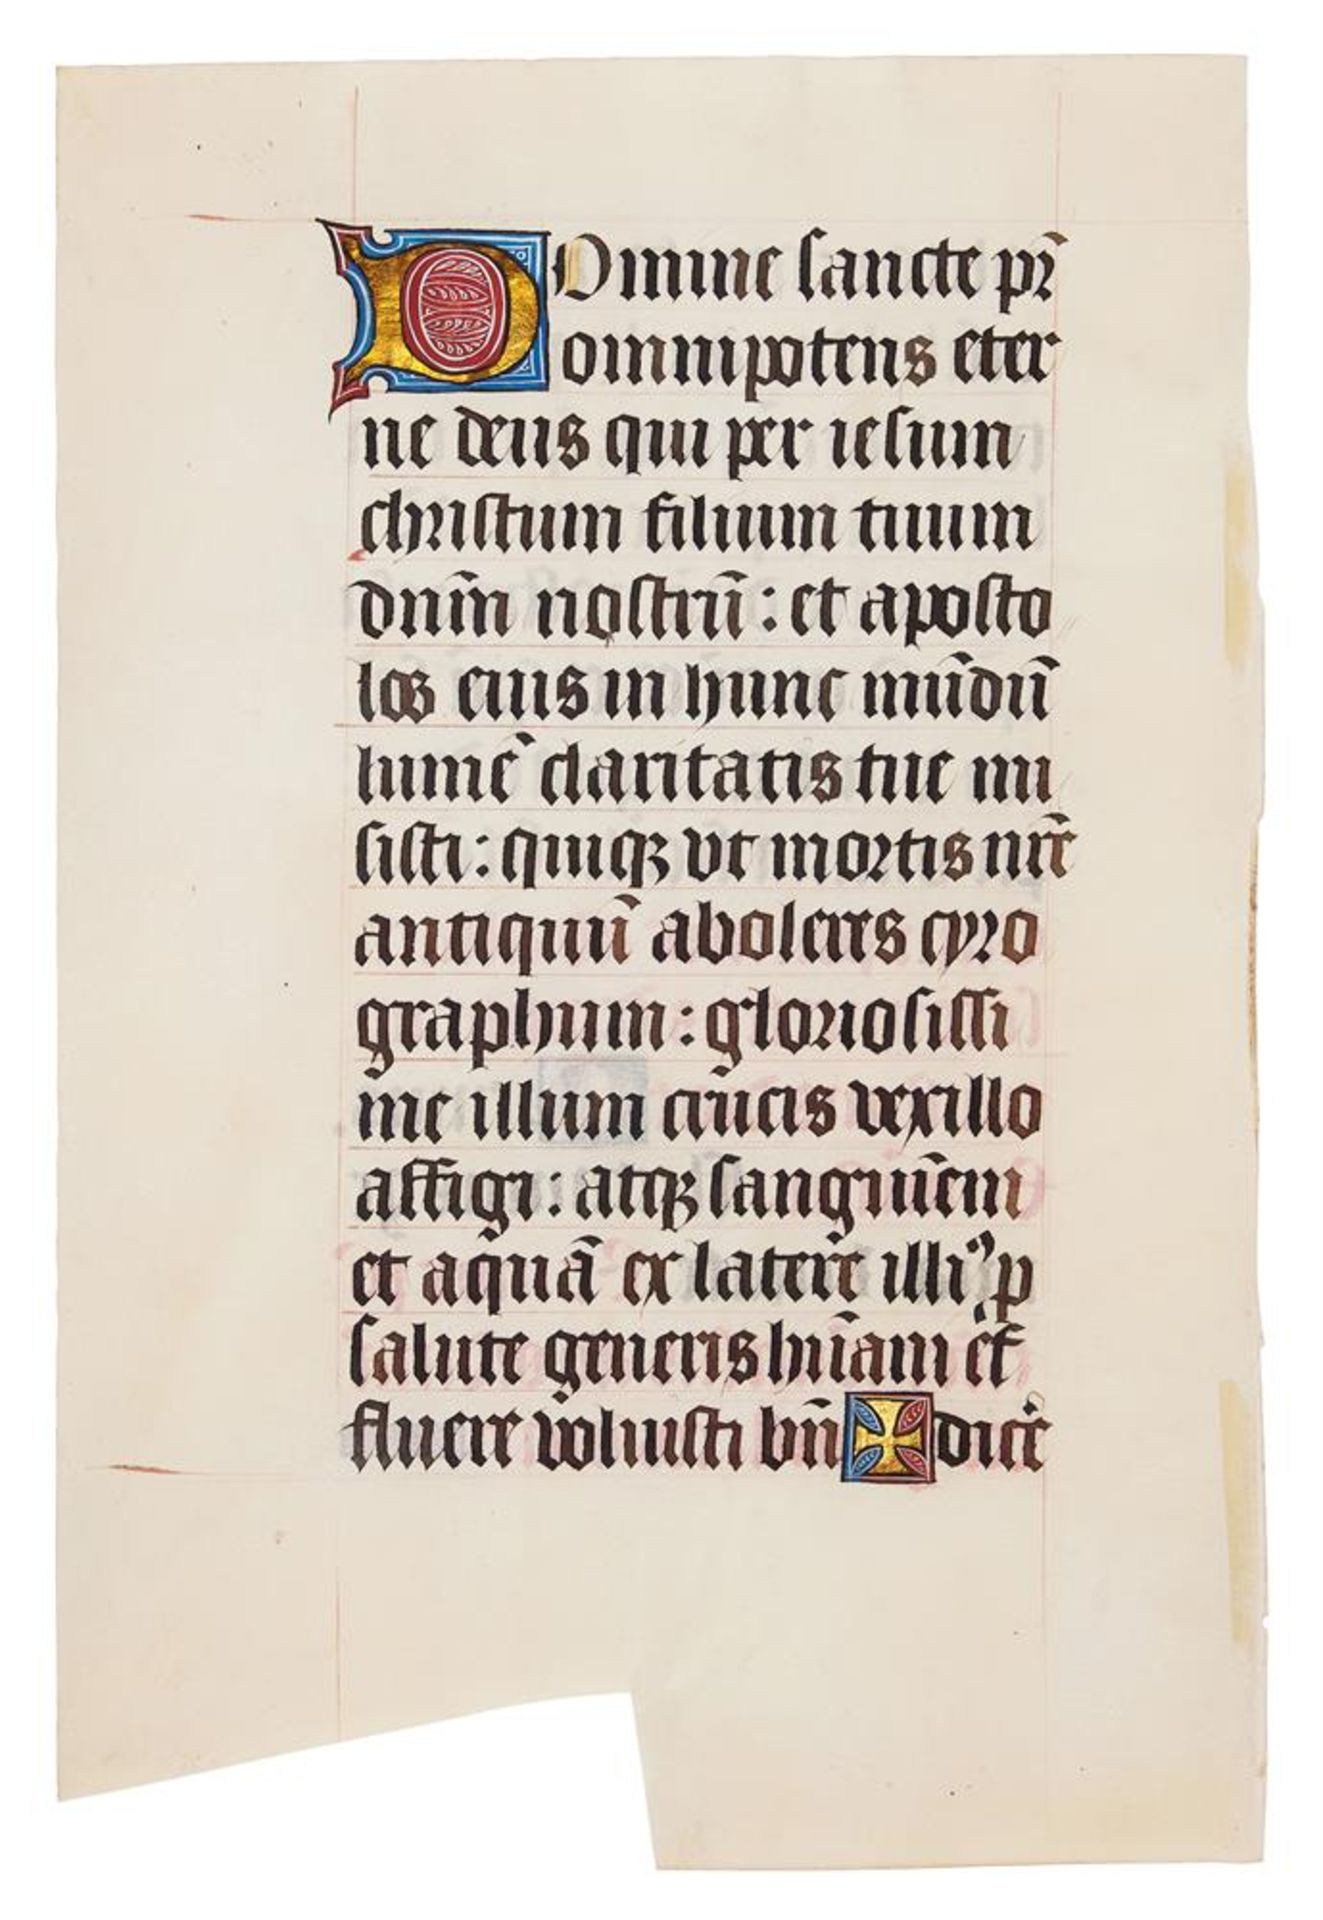 Domine sancte pr̄
omnipotens eter
ne deus qui per iesum
christum filium tuum
dnm̄ nostrū : et aposto
los eius in hunc mūdū
lumē claritatis tue mi
sisti : quiqꝫ vt mortis nr̄e
antiquū aboleres cyro
graphum : gloriosissi
me illum crucis vexillo
affigi : atqꝫ sanguinem
et aquā ex latere illiꝰ ꝓ
salute generis hūani ef
fluere voluisti bn̄ ✠ dicere